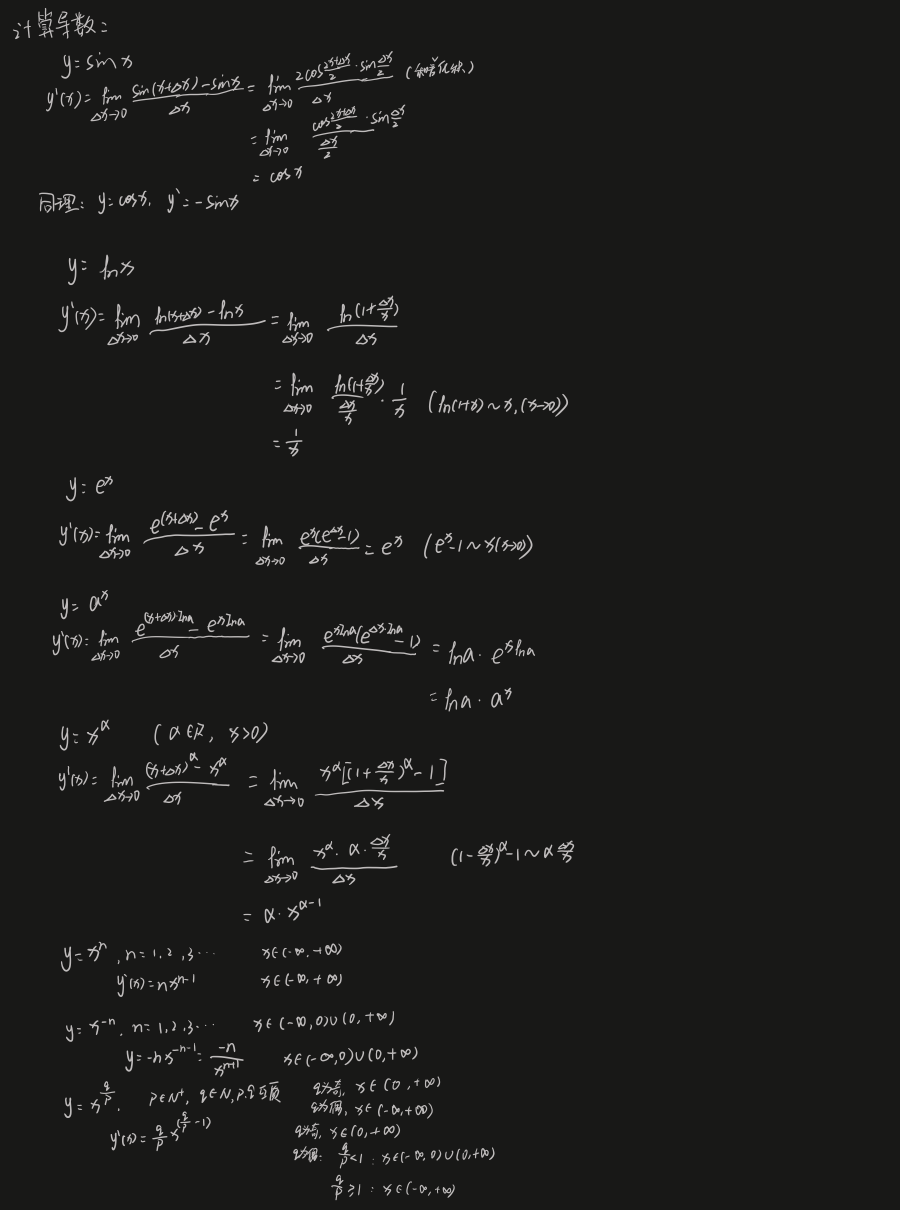 计算导数:
y = sin x
y'(x) = lim_{Δx→0} (sin(x+Δx) - sin x)/Δx = lim_{Δx→0} (2cos((2x+Δx)/2) · sin(Δx/2))/Δx (和差化积)
= lim_{Δx→0} (cos((2x+Δx)/2) · sin(Δx/2))/(Δx/2)
= cos x
同理: y = cos x, y' = -sin x
y = ln x
y'(x) = lim_{Δx→0} (ln(x+Δx) - ln x)/Δx = lim_{Δx→0} ln(1+Δx/x)/Δx
= lim_{Δx→0} ln(1+Δx/x)/(Δx/x) · 1/x (ln(1+x) ~ x, (x→0))
= 1/x
y = e^x
y'(x) = lim_{Δx→0} (e^{(x+Δx)} - e^x)/Δx = lim_{Δx→0} e^x(e^{Δx}-1)/Δx = e^x (e^x - 1 ~ x (x→0))
y = a^x
y'(x) = lim_{Δx→0} (e^{(x+Δx)·lna} - e^{xlna})/Δx = lim_{Δx→0} e^{xlna}(e^{Δx·lna} - 1)/Δx = lna · e^{xlna}
= lna · a^x
y = x^α (α∈R, x>0)
y'(x) = lim_{Δx→0} ((x+Δx)^α - x^α)/Δx = lim_{Δx→0} x^α[(1+Δx/x)^α - 1]/Δx
= lim_{Δx→0} (x^α · α · Δx/x)/Δx (1-Δx/x)^α - 1 ~ α Δx/x
= α · x^{α-1}
y = x^n, n = 1, 2, 3 ··· x∈(-∞, +∞)
y'(x) = nx^{n-1} x∈(-∞, +∞)
y = x^{-n}, n = 1, 2, 3 ··· x∈(-∞, 0)∪(0, +∞)
y = -nx^{-n-1} = -n/x^{n+1} x∈(-∞, 0)∪(0, +∞)
y = x^{q/p}, p∈N⁺, q∈N, p.q互质 q为奇, x∈(0, +∞)
q为偶, x∈(-∞, +∞)
y'(x) = q/p x^{(q/p - 1)} q为奇, x∈(0, +∞)
q为偶: q/p < 1 : x∈(-∞, 0)∪(0, +∞)
q/p ≥ 1 : x∈(-∞, +∞)